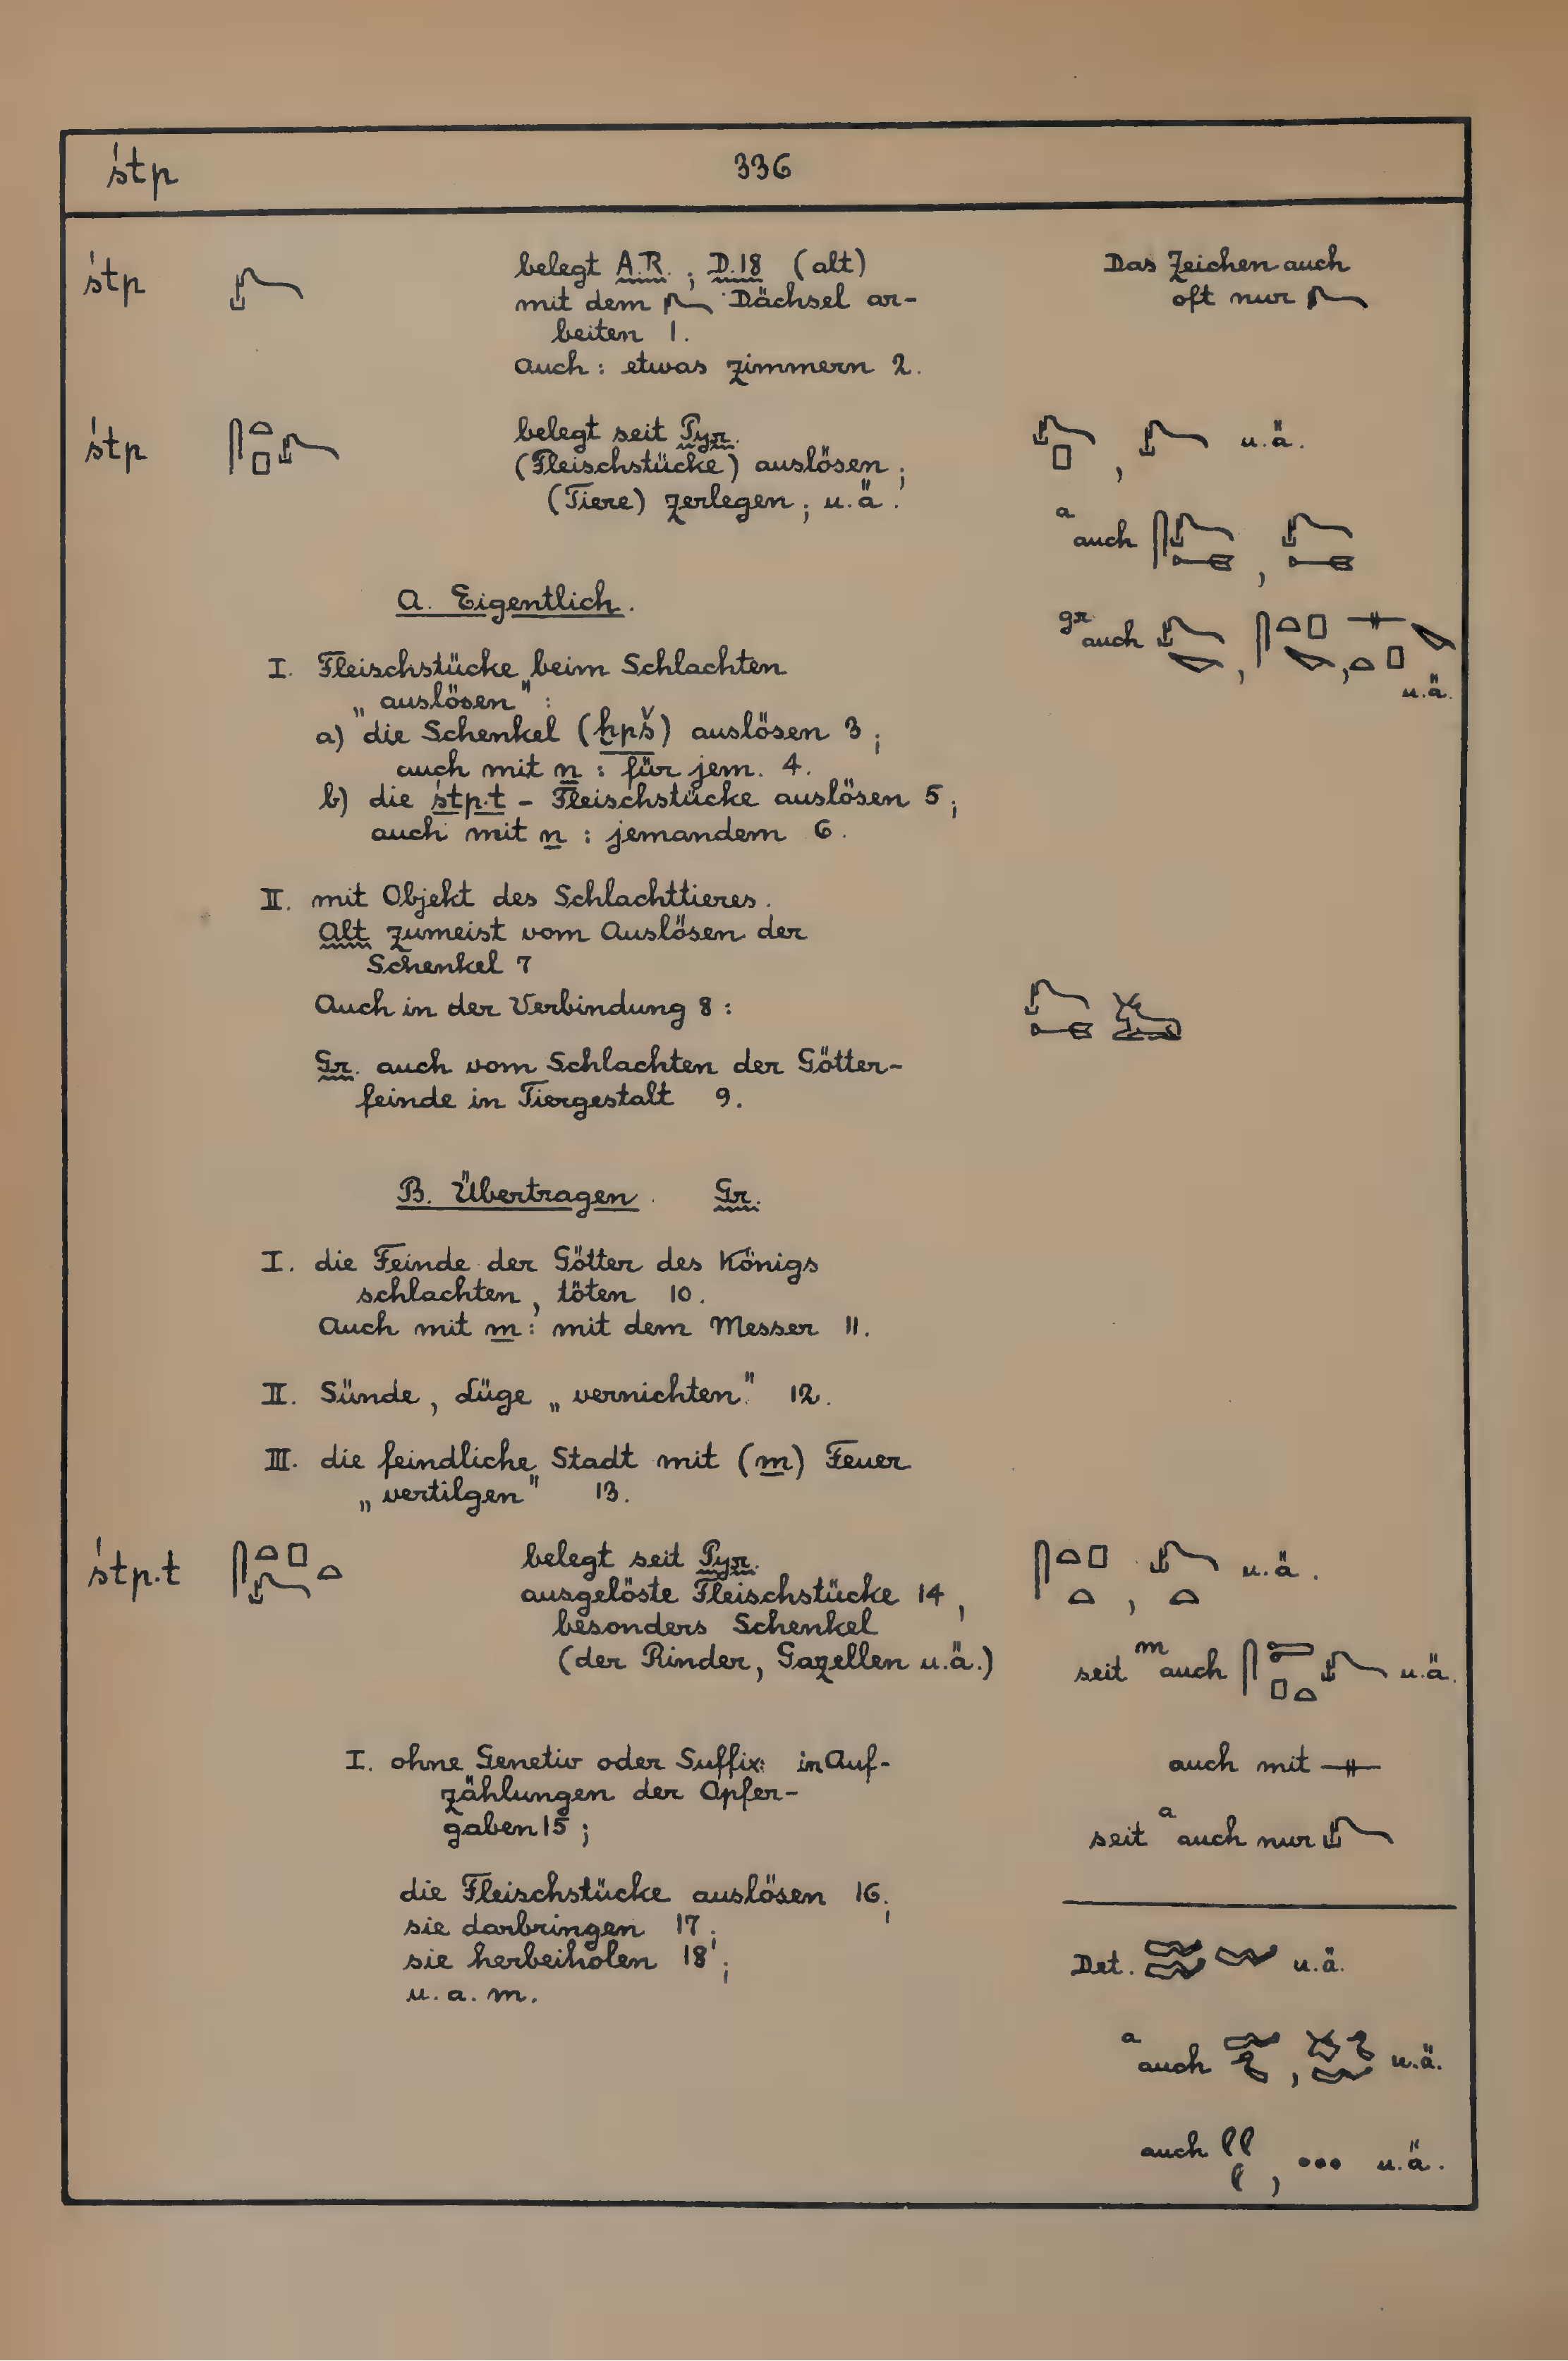 śtp 336
śtp
belegt A.R.; D.18 (alt)
mit dem Dächsel ar-
beiten 1.
Auch: etwas zimmern 2.
Das Zeichen auch
oft nur
śtp
belegt seit Pyr.
(Fleischstücke) auslösen;
(Tiere) zerlegen; u.ä.
, u.ä.
a auch ,
gr auch , ,
u.ä.
A. Eigentlich.
I. Fleischstücke beim Schlachten
„auslösen":
a) die Schenkel (ḫpš) auslösen 3;
auch mit n: für jem. 4.
b) die śtp.t - Fleischstücke auslösen 5;
auch mit n: jemandem 6.
II. mit Objekt des Schlachttieres.
Alt zumeist vom Auslösen der
Schenkel 7
Auch in der Verbindung 8:
Gr. auch vom Schlachten der Götter-
feinde in Tiergestalt 9.
B. Übertragen. Gr.
I. die Feinde der Götter des Königs
schlachten, töten 10.
Auch mit m: mit dem Messer 11.
II. Sünde, Lüge „vernichten" 12.
III. die feindliche Stadt mit (m) Feuer
„vertilgen" 13.
śtp.t
belegt seit Pyr.
ausgelöste Fleischstücke 14,
besonders Schenkel
(der Rinder, Gazellen u.ä.)
, u.ä.
seit m auch u.ä.
I. ohne Genetiv oder Suffix: in Auf-
zählungen der Opfer-
gaben 15;
die Fleischstücke auslösen 16;
sie darbringen 17;
sie herbeiholen 18;
u.a.m.
auch mit
seit a auch nur
Det. u.ä.
a auch , u.ä.
auch , u.ä.